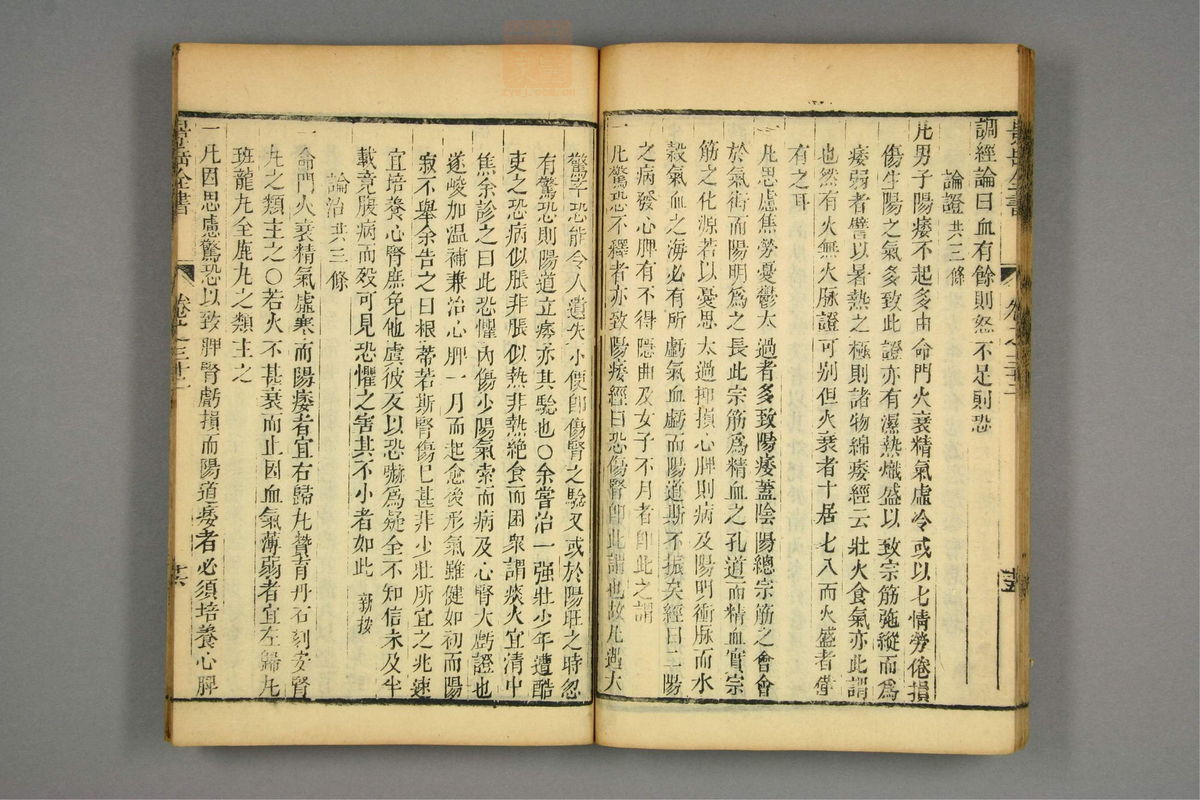 景岳全書 卷之三十二 廿五
調經論曰血有餘則怒不足則恐
論證共三條
凢男子陽痿不起多由命門火衰精氣虛冷或以七情勞倦損
傷生陽之氣多致此證亦有濕熱熾盛以致宗筋弛縱而爲
痿弱者譬以暑熱之極則諸物綿痿經云壯火食氣亦此謂
也然有火無火脉證可别但火衰者十居七八而火盛者僅
有之耳
凢思慮焦勞憂鬱太過者多致陽痿蓋陰陽總宗筋之會會
於氣街而陽明爲之長此宗筋爲精血之孔道而精血實宗
筋之化源若以憂思太過抑損心脾則病及陽明衝脉而水
穀氣血之海必有所虧氣血虧而陽道斯不振矣經曰二陽
之病發心脾有不得隱曲及女子不月者即此之謂
一凢驚恐不釋者亦致陽痿經曰恐傷腎即此謂也故凢遇大
驚卒恐能令人遺失小便即傷腎之驗又或於陽旺之時忽
有驚恐則陽道立痿亦其驗也○余嘗治一强壯少年遭酷
吏之恐病似脹非脹似熱非熱絶食而困衆謂痰火宜清中
焦余診之曰此恐懼內傷少陽氣索而病及心腎大虧證也
遂峻加温補兼治心脾一月而起愈後形氣雖健如初而陽
寂不舉余告之曰根蒂若斯腎傷已甚非少壯所宜之兆速
宜培養心腎庶免他虞彼反以恐嚇爲疑全不知信未及半
載竟復病而殁可見恐懼之害其不小者如此 新按
論治共三條
一命門火衰精氣虛寒而陽痿者宜右歸凢贊育丹石刻安腎
凢之類主之○若火不甚衰而止因血氣薄弱者宜左歸凢
班龍凢全鹿凢之類主之
一凢因思慮驚恐以致脾腎虧損而陽道痿者必須培養心脾
景岳全書 卷之三十二 廿六